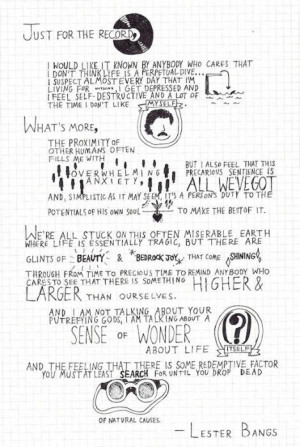 JUST FOR THE RECORD,
I WOULD LIKE IT KNOWN BY ANYBODY WHO CARES THAT
I DON'T THINK LIFE IS A PERPETUAL DIVE...
I SUSPECT ALMOST EVERY DAY THAT I'M
LIVING FOR NOTHING, I GET DEPRESSED AND
I FEEL SELF-DESTRUCTIVE AND A LOT OF
THE TIME I DON'T LIKE MYSELF.
WHAT'S MORE,
THE PROXIMITY OF
OTHER HUMANS OFTEN
FILLS ME WITH
OVERWHELMING
ANXIETY,
BUT I ALSO FEEL THAT THIS
PRECARIOUS SENTIENCE IS
ALL WE'VE GOT
AND, SIMPLISTIC AS IT MAY SEEM, IT'S A PERSON'S DUTY TO THE
POTENTIALS OF HIS OWN SOUL TO MAKE THE BEST OF IT.
WE'RE ALL STUCK ON THIS OFTEN MISERABLE EARTH
WHERE LIFE IS ESSENTIALLY TRAGIC, BUT THERE ARE
GLINTS OF BEAUTY & BEDROCK JOY THAT COME SHINING
THROUGH FROM TIME TO PRECIOUS TIME TO REMIND ANYBODY WHO
CARES TO SEE THAT THERE IS SOMETHING HIGHER &
LARGER THAN OURSELVES.
AND I AM NOT TALKING ABOUT YOUR
PUTREFYING GODS, I AM TALKING ABOUT A
SENSE OF WONDER
ABOUT LIFE ITSELF
AND THE FEELING THAT THERE IS SOME REDEMPTIVE FACTOR
YOU MUST AT LEAST SEARCH FOR UNTIL YOU DROP DEAD
OF NATURAL CAUSES.
— LESTER BANGS